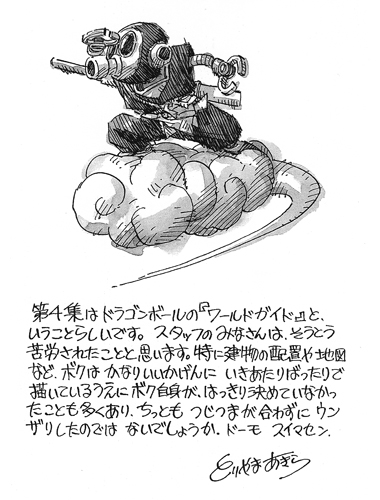 第4集はドラゴンボールの『ワールドガイド』と、
いうことらしいです。スタッフのみなさんは、そうとう
苦労されたことと思います。特に建物の配置や地図
など、ボクはかなりいいかげんに いきあたりばったりで
描いているうえにボク自身が、はっきり決めていなかっ
たことも多くあり、ちっとも つじつまが合わずに ウン
ザリしたのでは ないでしょうか。ドーモ スイマセン。
とりやまあきら